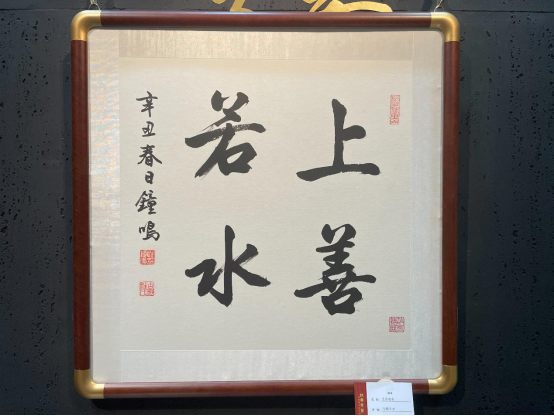 上善
若水
辛丑春日鐘鳴